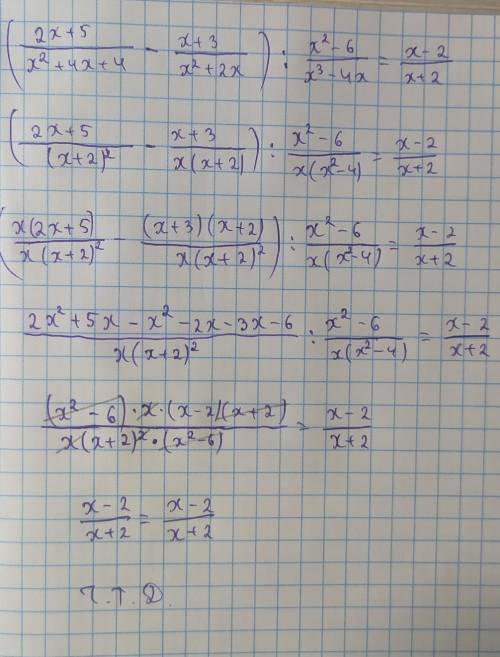 (2x+5/x²+4x+4 − x+3/x²+2x) : x²−6/x³−4x = x−2/x+2
(2x+5/(x+2)² − x+3/x(x+2)) : x²−6/x(x²−4) = x−2/x+2
(x(2x+5)/x(x+2)² − (x+3)(x+2)/x(x+2)²) : x²−6/x(x²−4) = x−2/x+2
2x²+5x−x²−2x−3x−6/x(x+2)² : x²−6/x(x²−4) = x−2/x+2
(x²−6)·x·(x−2)(x+2)/x(x+2)²·(x²−6) = x−2/x+2
x−2/x+2 = x−2/x+2
Ч.Т.Д.